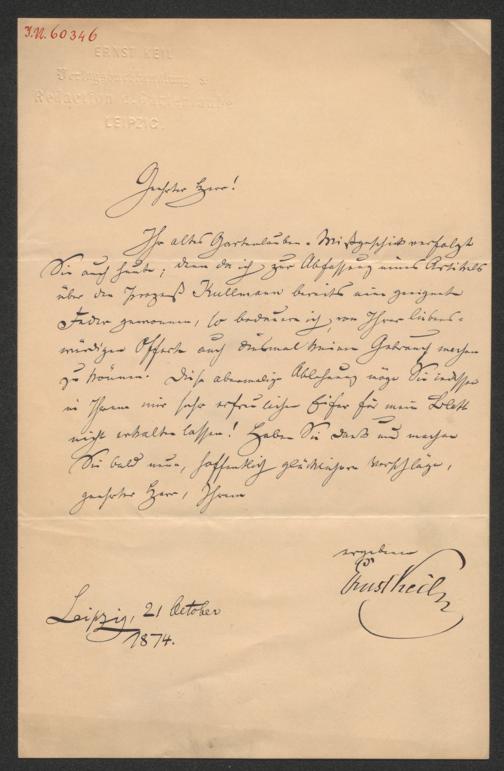 I.N. 60346
ERNST KEIL
Verlagsbuchhandlung &
Redaction d. Gartenlaube
LEIPZIG.
Geehrter Herr!
Ihr altes Gartenlauben-Mißgeschick verfolgt
Sie auch heute; denn da ich zur Abfassung eines Artikels
über den Prozeß Kullmann bereits eine geeignete
Feder gewonnen, so bedauere ich, von Ihrer liebens-
würdigen Offerte auch diesmal keinen Gebrauch machen
zu können. Diese abermalige Ablehnung möge Sie indessen
in Ihrem mir sehr erfreulichen Eifer für mein Blatt
nicht erkalten lassen! Haben Sie Dank und machen
Sie bald neue, hoffentlich glücklichere Vorschläge,
geehrter Herr, Ihrem
ergebenen
Ernst Keil
Leipzig, 21 October
1874.